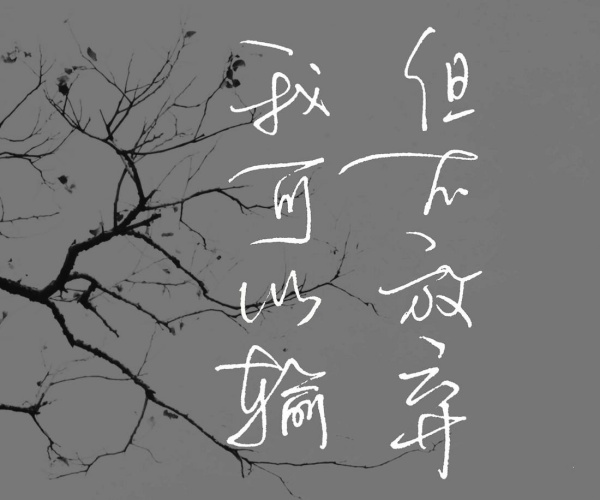 我可以输
但不放弃